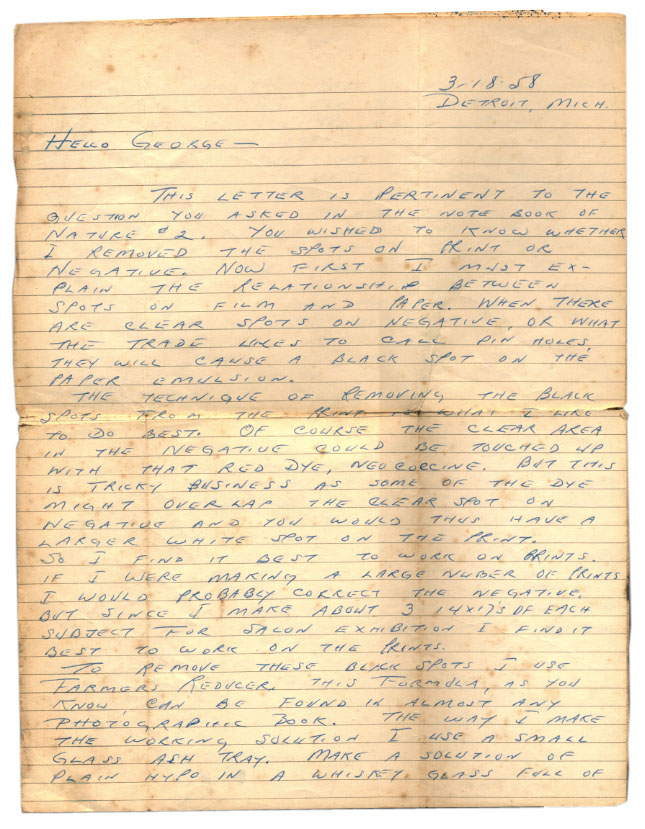 3-18-58
DETROIT, MICH.
HELLO GEORGE —
THIS LETTER IS PERTINENT TO THE
QUESTION YOU ASKED IN THE NOTE BOOK OF
NATURE #2. YOU WISHED TO KNOW WHETHER
I REMOVED THE SPOTS ON PRINT OR
NEGATIVE. NOW FIRST I MUST EX-
PLAIN THE RELATIONSHIP BETWEEN
SPOTS ON FILM AND PAPER. WHEN THERE
ARE CLEAR SPOTS ON NEGATIVE, OR WHAT
THE TRADE LIKES TO CALL PIN HOLES,
THEY WILL CAUSE A BLACK SPOT ON THE
PAPER EMULSION.
THE TECHNIQUE OF REMOVING THE BLACK
SPOTS FROM THE PRINT IS WHAT I LIKE
TO DO BEST. OF COURSE THE CLEAR AREA
IN THE NEGATIVE COULD BE TOUCHED UP
WITH THAT RED DYE, NEOCOCCINE. BUT THIS
IS TRICKY BUSINESS AS SOME OF THE DYE
MIGHT OVERLAP THE CLEAR SPOT ON
NEGATIVE AND YOU WOULD THUS HAVE A
LARGER WHITE SPOT ON THE PRINT.
SO I FIND IT BEST TO WORK ON PRINTS.
IF I WERE MAKING A LARGE NUBER OF PRINTS
I WOULD PROBABLY CORRECT THE NEGATIVE.
BUT SINCE I MAKE ABOUT 3 14X17'S OF EACH
SUBJECT FOR SALON EXHIBITION I FIND IT
BEST TO WORK ON THE PRINTS.
TO REMOVE THESE BLACK SPOTS I USE
FARMERS REDUCER. THIS FORMULA, AS YOU
KNOW, CAN BE FOUND IN ALMOST ANY
PHOTOGRAPHIC BOOK. THE WAY I MAKE
THE WORKING SOLUTION I USE A SMALL
GLASS ASH TRAY. MAKE A SOLUTION OF
PLAIN HYPO IN A WHISKEY GLASS FULL OF